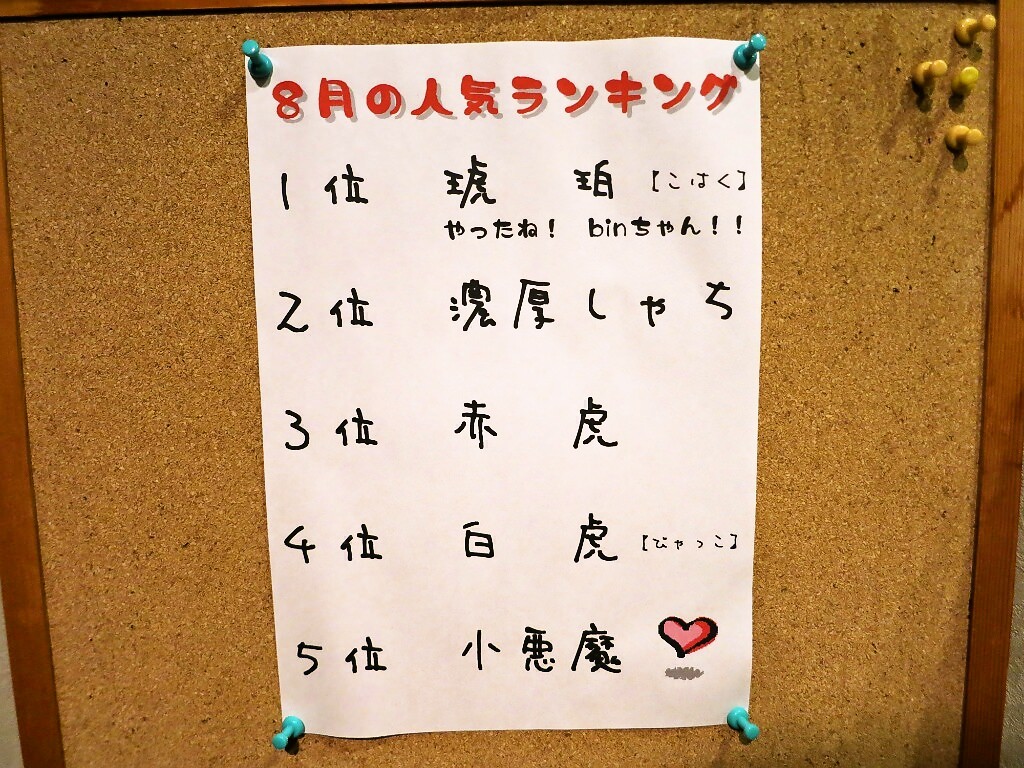 8月の人気ランキング
1位 琥珀 【こはく】
やったね! binちゃん!!
2位 濃厚しゃち
3位 赤虎
4位 白虎 【びゃっこ】
5位 小悪魔